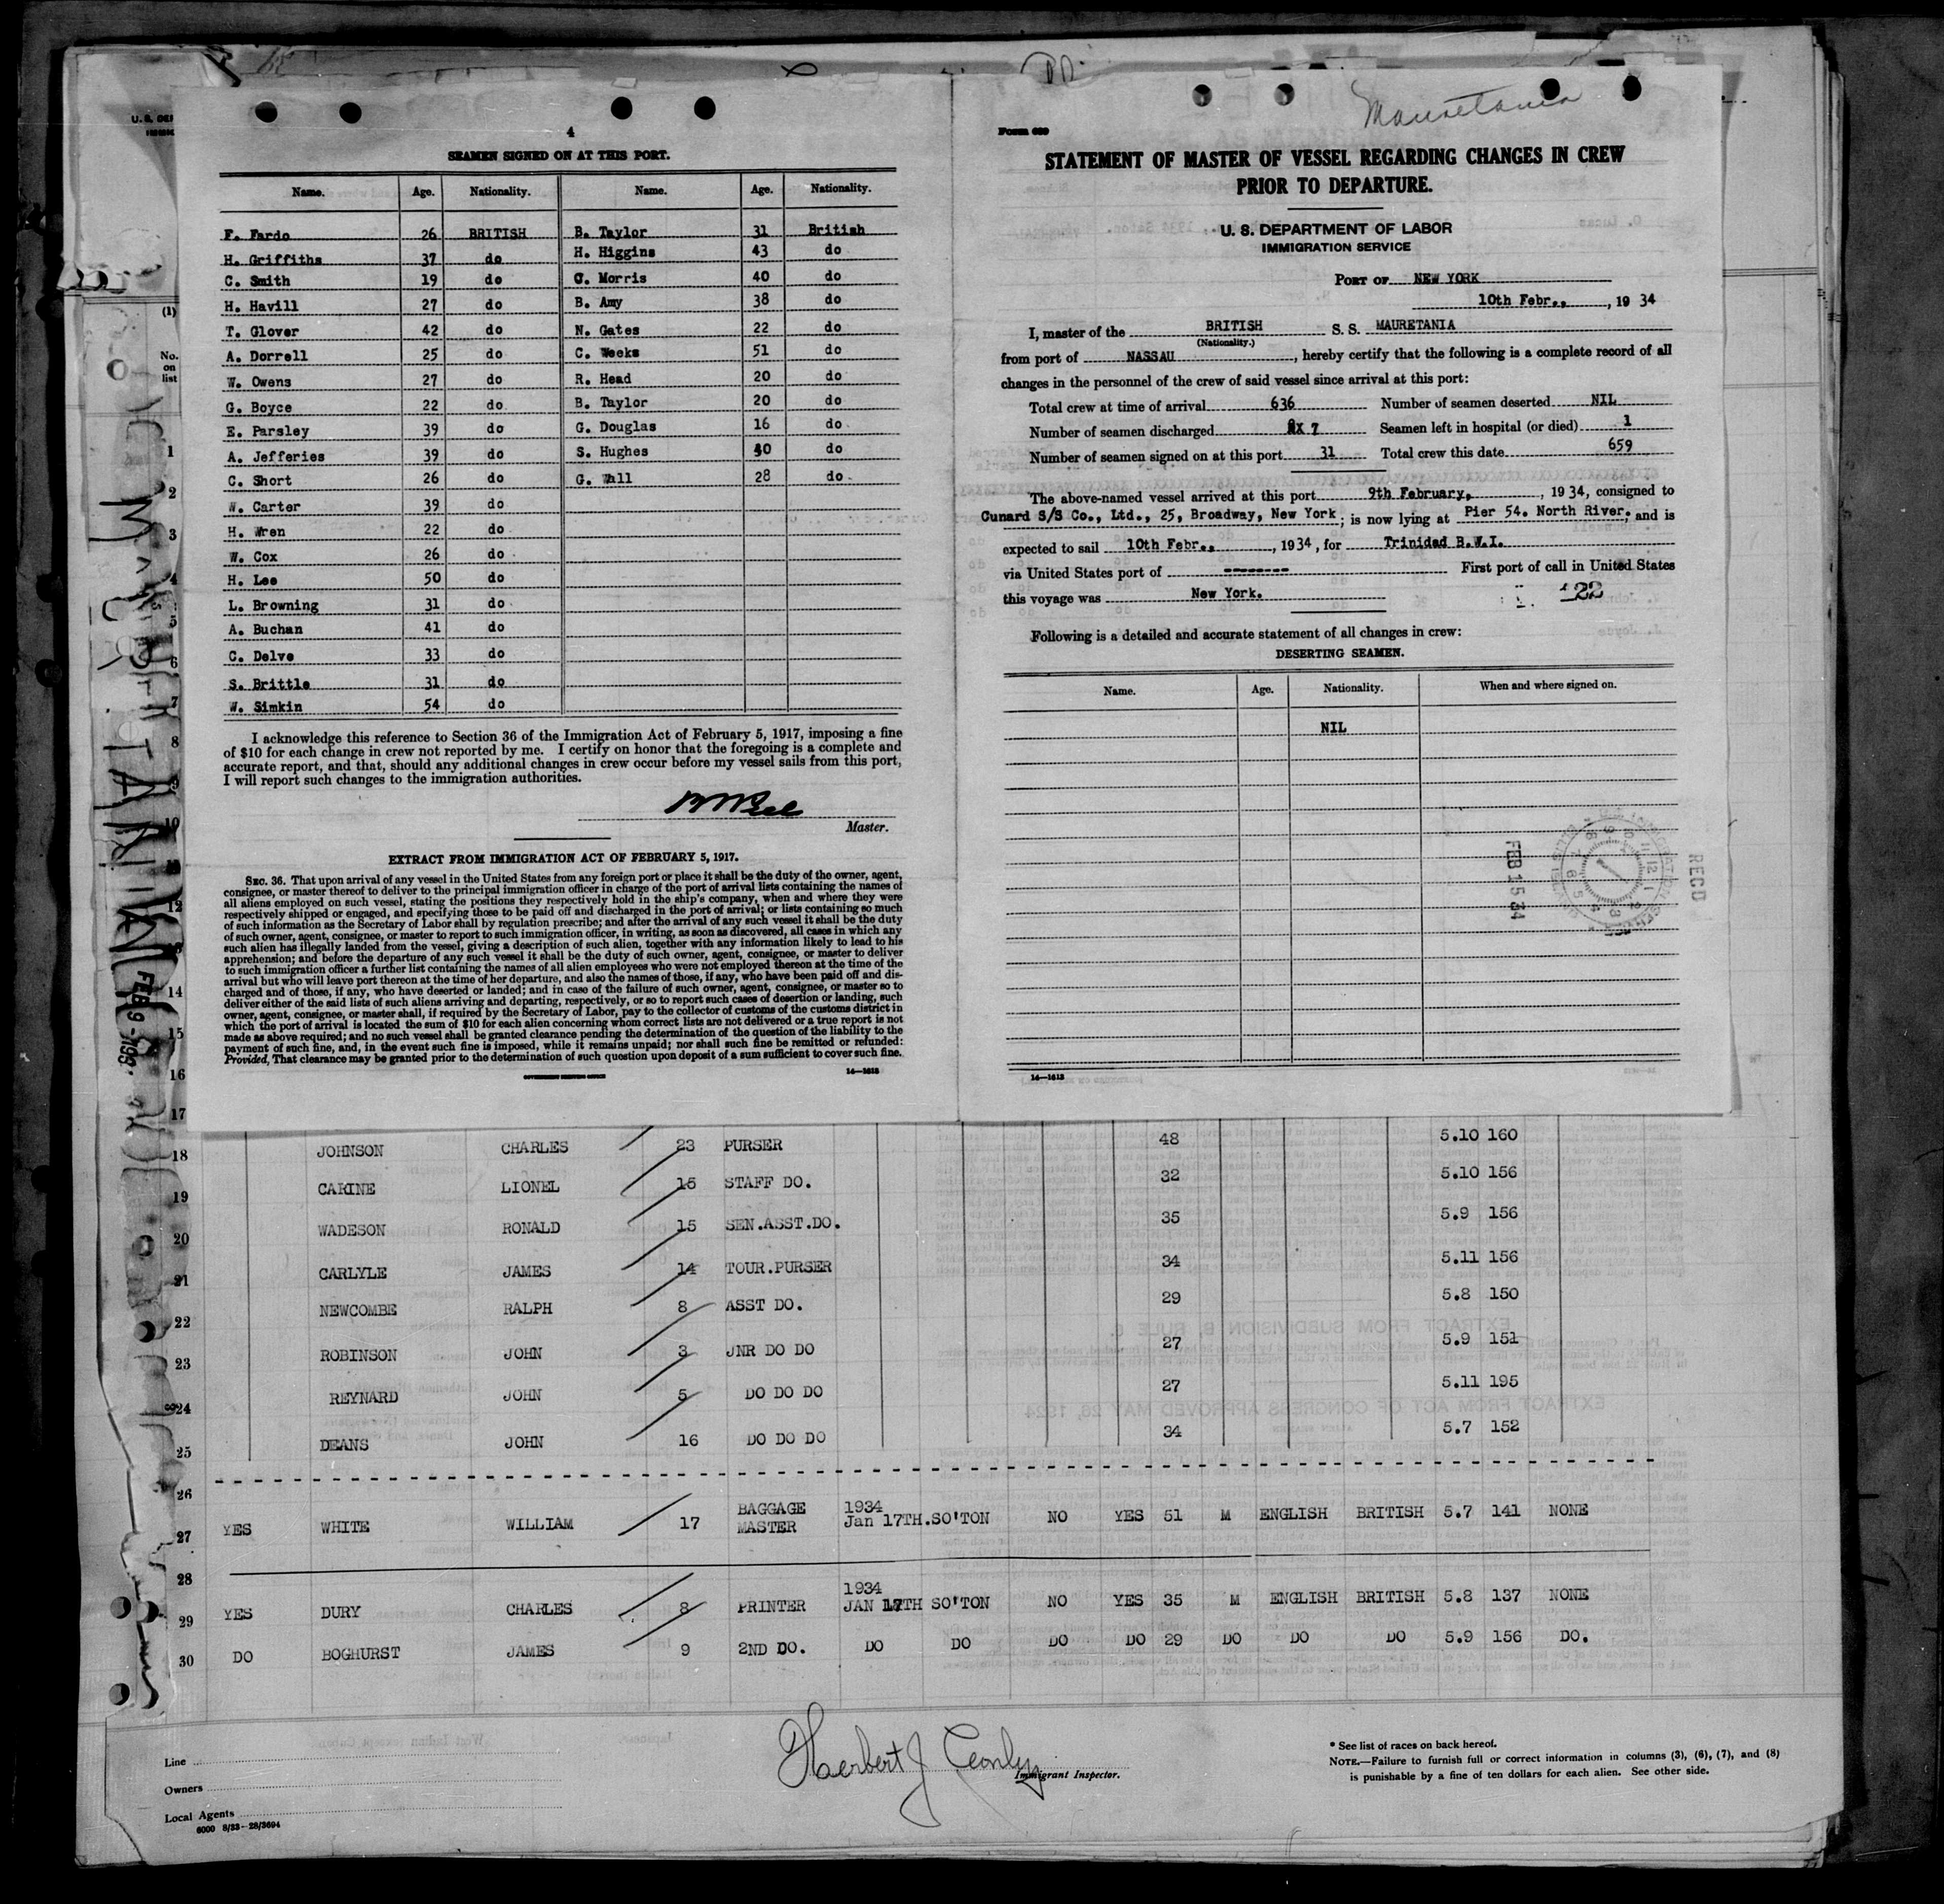 4
SEAMEN SIGNED ON AT THIS PORT.
Name. Age. Nationality. Name. Age. Nationality.
F. Fardo 26 BRITISH B. Taylor 31 British
H. Griffiths 37 do H. Higgins 43 do
C. Smith 19 do C. Morris 40 do
H. Havill 27 do B. Amy 38 do
T. Glover 42 do N. Gates 22 do
A. Dorrell 25 do C. Weeks 51 do
W. Owens 27 do R. Head 20 do
G. Boyce 22 do. B. Taylor 20 do
E. Parsley 39 do G. Douglas 16 do
A. Jefferies 39 do S. Hughes do
C. Short 26 do G. Wall 28 do
W. Carter 39 do
H. Wren 22 do
W. Cox 26 do
H. Lee 50 do
L. Browning 31 do
A. Buchan 41 do
C. Delve 33 do
S. Brittle 31 do
W. Simkin 54 do
I acknowledge this reference to Section 36 of the Immigration Act of February 5, 1917, imposing a fine
of $10 for each change in crew not reported by me. I certify on honor that the foregoing is a complete and
accurate report, and that, should any additional changes in crew occur before my vessel sails from this port,
I will report such changes to the immigration authorities.
Master.
EXTRACT FROM IMMIGRATION ACT OF FEBRUARY 5, 1917.
SEC. 36. That upon arrival of any vessel in the United States from any foreign port or place it shall be the duty of the owner, agent,
consignee, or master thereof to deliver to the principal immigration officer in charge of the port of arrival lists containing the names of
all aliens employed on such vessel, stating the positions they respectively hold in the ship's company, when and where they were
respectively shipped or engaged, and specifying those to be paid off and discharged in the port of arrival; or lists containing so much
of such information as the Secretary of Labor shall by regulation prescribe; and after the arrival of any such vessel it shall be the duty
of such owner, agent, consignee, or master to report to such immigration officer, in writing, as soon as discovered, all cases in which any
such alien has illegally landed from the vessel, giving a description of such alien, together with any information likely to lead to his
apprehension; and before the departure of any such vessel it shall be the duty of such owner, agent, consignee, or master to deliver
to such immigration officer a further list containing the names of all alien employees who were not employed thereon at the time of the
arrival but who will leave port thereon at the time of her departure, and also the names of those, if any, who have been paid off and dis-
charged and of those, if any, who have deserted or landed; and in case of the failure of such owner, agent, consignee, or master so to
deliver either of the said lists of such aliens arriving and departing, respectively, or so to report such cases of desertion or landing, such
owner, agent, consignee, or master shall, if required by the Secretary of Labor, pay to the collector of customs of the customs district in
which the port of arrival is located the sum of $10 for each alien concerning whom correct lists are not delivered or a true report is not
made as above required; and no such vessel shall be granted clearance pending the determination of the question of the liability to the
payment of such fine, and, in the event such fine is imposed, while it remains unpaid; nor shall such fine be remitted or refunded:
Provided, That clearance may be granted prior to the determination of such question upon deposit of a sum sufficient to cover such fine.
GOVERNMENT PRINTING OFFICE 14—1613
Mauretania
Form 689
STATEMENT OF MASTER OF VESSEL REGARDING CHANGES IN CREW
PRIOR TO DEPARTURE.
U. S. DEPARTMENT OF LABOR
IMMIGRATION SERVICE
PORT OF NEW YORK
10th Febr., , 19 34
I, master of the BRITISH S. S. MAURETANIA
(Nationality.)
from port of NASSAU , hereby certify that the following is a complete record of all
changes in the personnel of the crew of said vessel since arrival at this port:
Total crew at time of arrival 636 Number of seamen deserted NIL
Number of seamen discharged 7 Seamen left in hospital (or died) 1
Number of seamen signed on at this port 31 Total crew this date 659
The above-named vessel arrived at this port 9th February, , 19 34, consigned to
Cunard S/S Co., Ltd., 25, Broadway, New York ; is now lying at Pier 54. North River. and is
expected to sail 10th Febr., , 1934, for Trinidad B.W.I.
via United States port of -------- First port of call in United States
this voyage was New York.
122
Following is a detailed and accurate statement of all changes in crew:
DESERTING SEAMEN.
Name. Age. Nationality. When and where signed on.
NIL
FEB 15 34
REC'D
14—1613
U. S. DE
(1)
No.
on
list
1
2
3
4
5
6
7
8
9
10
12
14
15
16
17
MAURETANIA
FEB 9 - 193
18 JOHNSON CHARLES 23 PURSER 48 5.10 160
19 CARINE LIONEL 15 STAFF DO. 32 5.10 156
20 WADESON RONALD 15 SEN.ASST.DO. 35 5.9 156
21 CARLYLE JAMES 14 TOUR.PURSER 34 5.11 156
22 NEWCOMBE RALPH 8 ASST DO. 29 5.8 150
23 ROBINSON JOHN 3 JNR DO DO 27 5.9 151
24 REYNARD JOHN 5 DO DO DO 27 5.11 195
25 DEANS JOHN 16 DO DO DO 34 5.7 152
26
27 YES WHITE WILLIAM 17 BAGGAGE MASTER 1934 Jan 17TH.SO'TON NO YES 51 M ENGLISH BRITISH 5.7 141 NONE
28
29 YES DURY CHARLES 8 PRINTER 1934 JAN 17TH SO'TON NO YES 35 M ENGLISH BRITISH 5.8 137 NONE
30 DO BOGHURST JAMES 9 2ND DO. DO DO DO DO 29 DO DO DO 5.9 156 DO.
Line
Owners
Local Agents
6000 8/33—28/3694
Herbert J
Immigrant Inspector.
* See list of races on back hereof.
NOTE.—Failure to furnish full or correct information in columns (3), (6), (7), and (8)
is punishable by a fine of ten dollars for each alien. See other side.